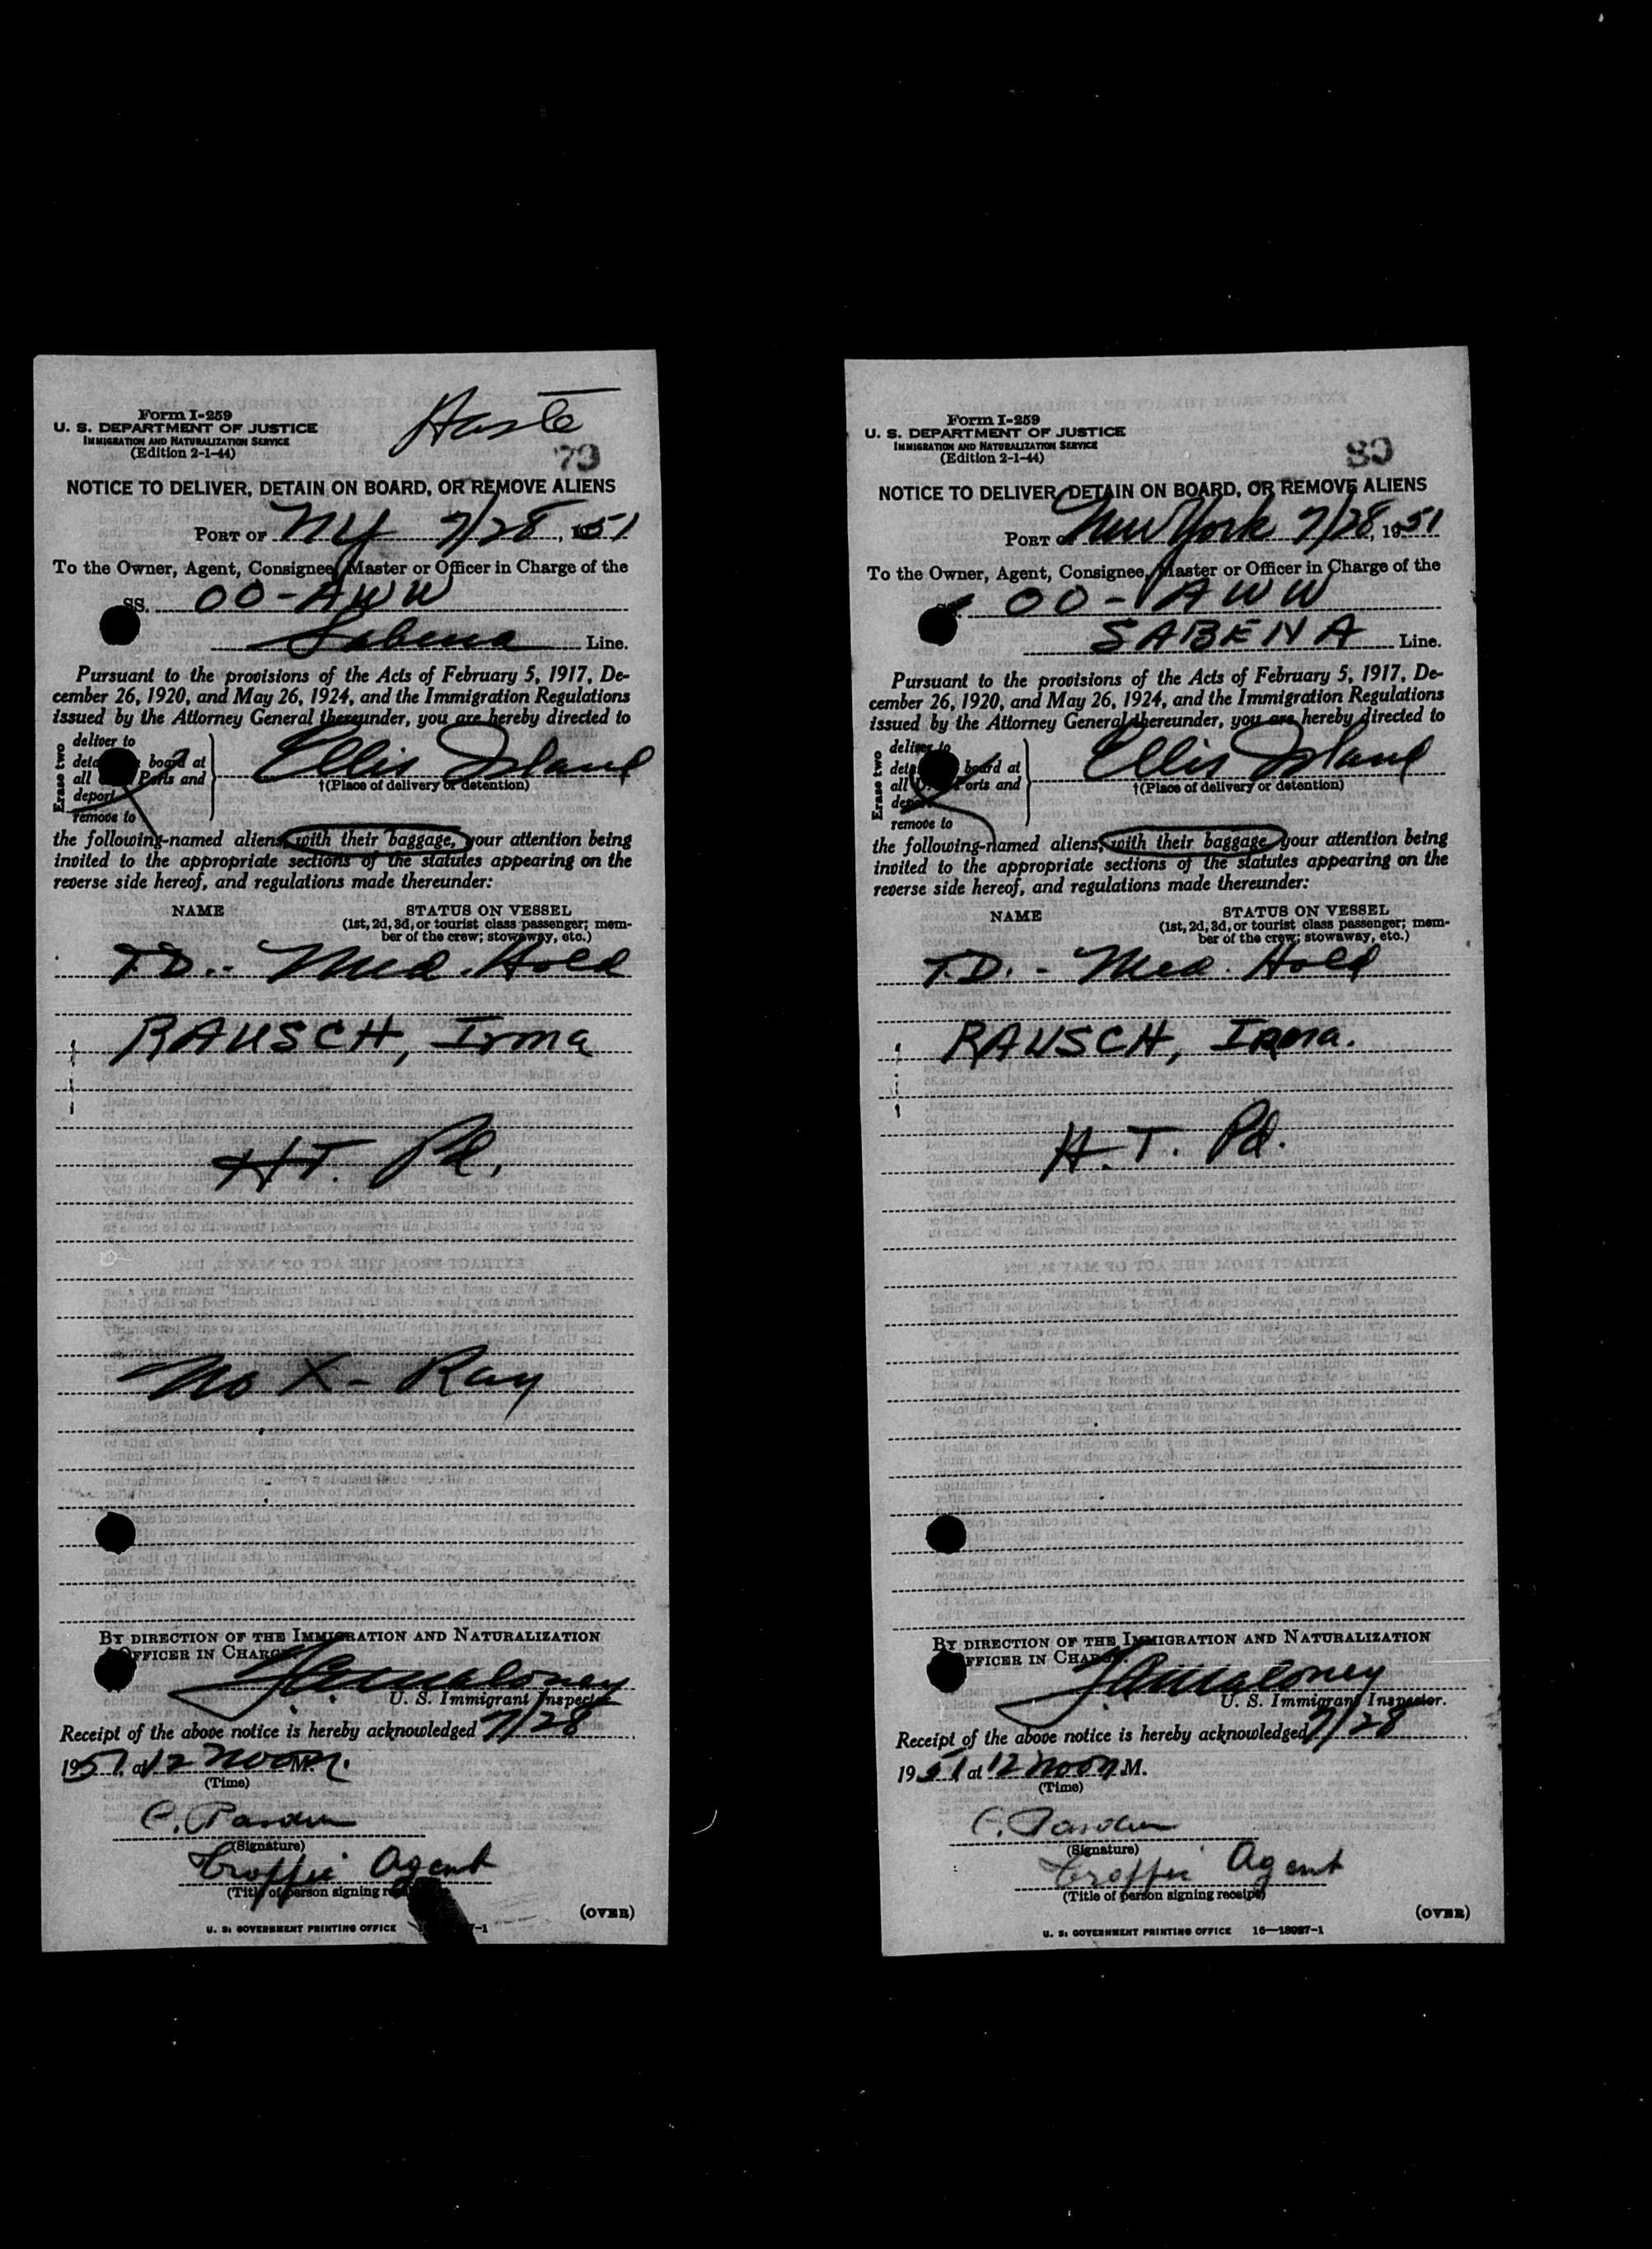 Form I-259
U. S. DEPARTMENT OF JUSTICE
IMMIGRATION AND NATURALIZATION SERVICE
(Edition 2-1-44)
79
NOTICE TO DELIVER, DETAIN ON BOARD, OR REMOVE ALIENS
PORT OF NY 7/28, 1951
To the Owner, Agent, Consignee, Master or Officer in Charge of the
SS. OO-AWW
Sabena Line.
Pursuant to the provisions of the Acts of February 5, 1917, De-
cember 26, 1920, and May 26, 1924, and the Immigration Regulations
issued by the Attorney General thereunder, you are hereby directed to
Erase two
deliver to
board at
all Ports and
deport
remove to
Ellis Island
†(Place of delivery or detention)
the following-named aliens, with their baggage, your attention being
invited to the appropriate sections of the statutes appearing on the
reverse side hereof, and regulations made thereunder:
NAME STATUS ON VESSEL
(1st, 2d, 3d, or tourist class passenger; mem-
ber of the crew; stowaway, etc.)
T.D. - Med. Hold
RAUSCH, Irma
HT. Pd.
No X-Ray
BY DIRECTION OF THE IMMIGRATION AND NATURALIZATION
OFFICER IN CHARGE.
U. S. Immigrant Inspector.
Receipt of the above notice is hereby acknowledged 7/28
1951 at 12 noon M.
(Time)
(Signature)
Traffic Agent
(Title of person signing receipt)
(OVER)
U. S. GOVERNMENT PRINTING OFFICE
Form I-259
U. S. DEPARTMENT OF JUSTICE
IMMIGRATION AND NATURALIZATION SERVICE
(Edition 2-1-44)
80
NOTICE TO DELIVER, DETAIN ON BOARD, OR REMOVE ALIENS
PORT OF New York 7/28, 1951
To the Owner, Agent, Consignee, Master or Officer in Charge of the
OO-AWW
SABENA Line.
Pursuant to the provisions of the Acts of February 5, 1917, De-
cember 26, 1920, and May 26, 1924, and the Immigration Regulations
issued by the Attorney General thereunder, you are hereby directed to
Erase two
deliver to
board at
all Ports and
remove to
Ellis Island
†(Place of delivery or detention)
the following-named aliens, with their baggage, your attention being
invited to the appropriate sections of the statutes appearing on the
reverse side hereof, and regulations made thereunder:
NAME STATUS ON VESSEL
(1st, 2d, 3d, or tourist class passenger; mem-
ber of the crew; stowaway, etc.)
T.D. - Med. Hold
RAUSCH, Irma.
H.T. Pd.
BY DIRECTION OF THE IMMIGRATION AND NATURALIZATION
OFFICER IN CHARGE.
U. S. Immigrant Inspector.
Receipt of the above notice is hereby acknowledged 7/28
1951 at 12 noon M.
(Time)
(Signature)
Traffic Agent
(Title of person signing receipt)
(OVER)
U. S. GOVERNMENT PRINTING OFFICE